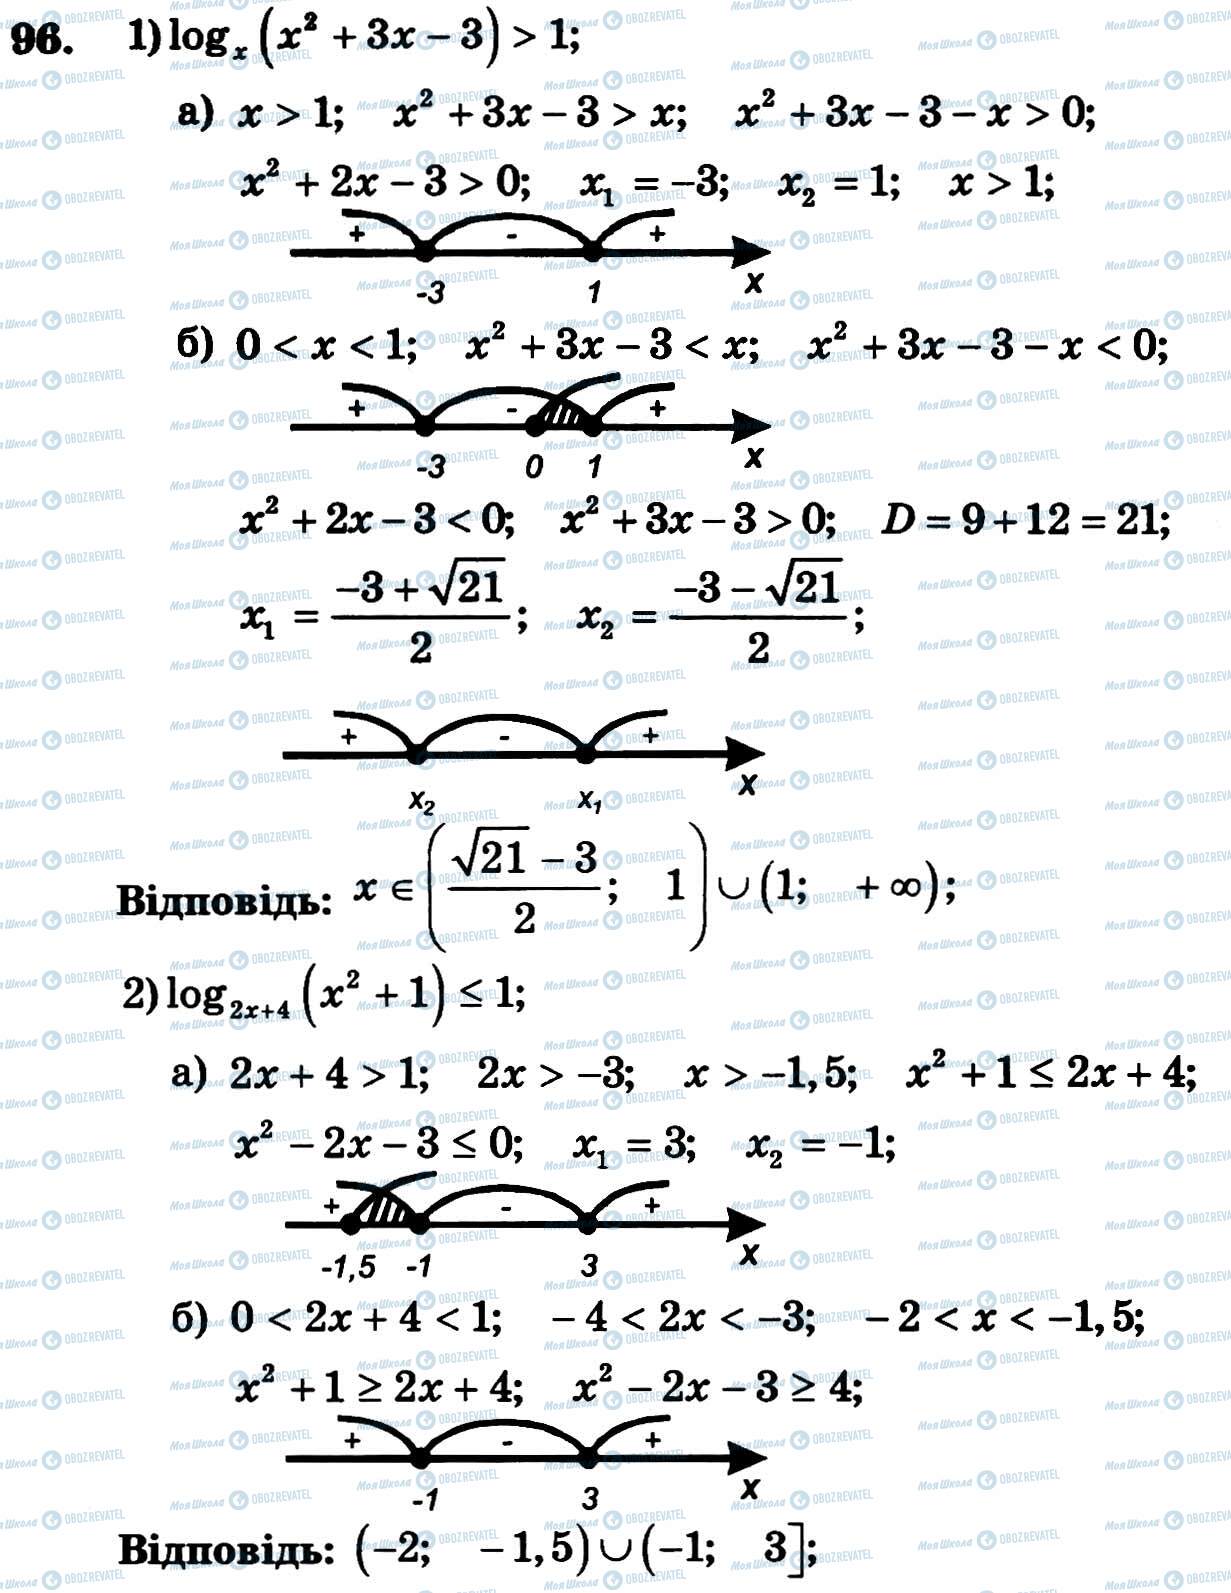 96. 1) log_x (x² + 3x − 3) > 1;
а) x > 1; x² + 3x − 3 > x; x² + 3x − 3 − x > 0;
x² + 2x − 3 > 0; x₁ = −3; x₂ = 1; x > 1;
+ - +
-3 1 x
б) 0 < x < 1; x² + 3x − 3 < x; x² + 3x − 3 − x < 0;
+ - +
-3 0 1 x
x² + 2x − 3 < 0; x² + 3x − 3 > 0; D = 9 + 12 = 21;
x₁ = (−3 + √21)/2; x₂ = (−3 − √21)/2;
+ - +
x₂ x₁ x
Відповідь: x ∈ ((√21 − 3)/2; 1) ∪ (1; + ∞);
2) log_{2x+4} (x² + 1) ≤ 1;
а) 2x + 4 > 1; 2x > −3; x > −1,5; x² + 1 ≤ 2x + 4;
x² − 2x − 3 ≤ 0; x₁ = 3; x₂ = −1;
+ - +
-1,5 -1 3 x
б) 0 < 2x + 4 < 1; − 4 < 2x < −3; − 2 < x < −1,5;
x² + 1 ≥ 2x + 4; x² − 2x − 3 ≥ 4;
+ - +
-1 3 x
Відповідь: (−2; − 1,5) ∪ (−1; 3];
Моя Школа OBOZREVATEL